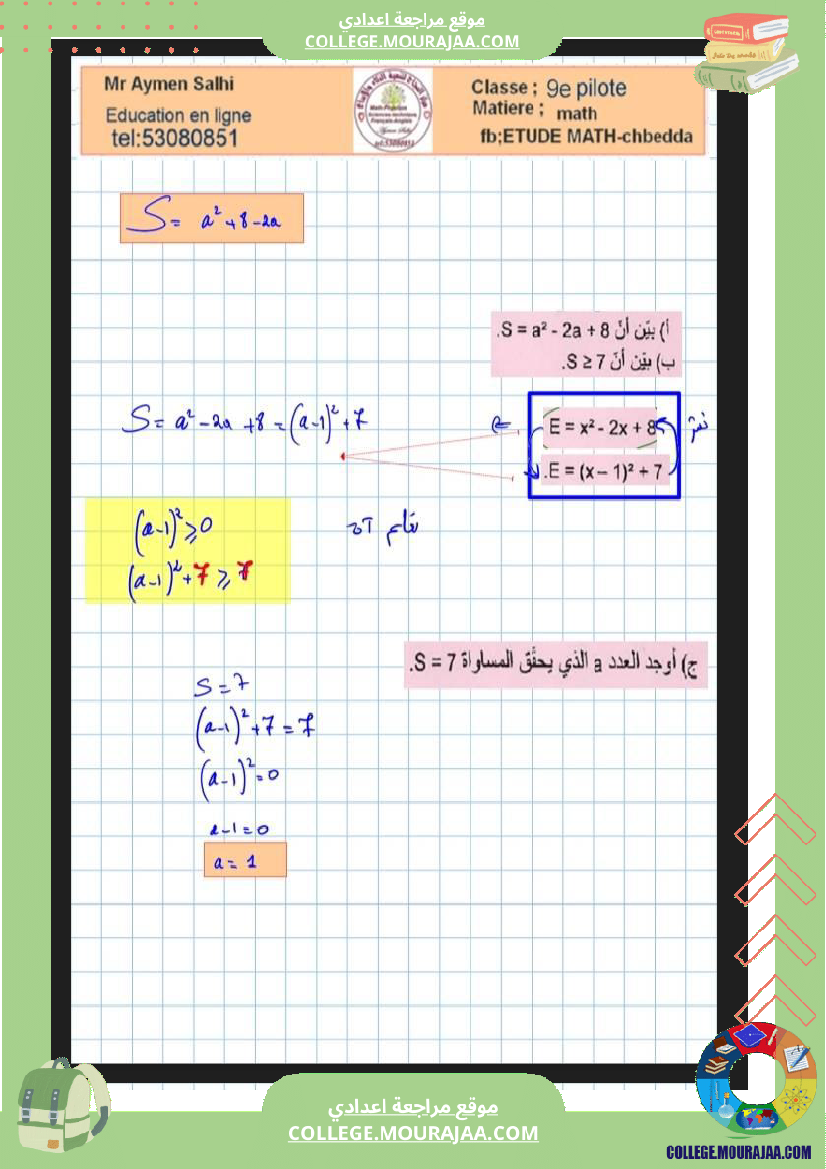 موقع مراجعة اعدادي
COLLEGE.MOURAJAA.COM
Mr Aymen Salhi
Education en ligne
tel:53080851
Classe ; 9e pilote
Matiere ; math
fb;ETUDE MATH-chbedda
S = a² + 8 - 2a
أ) بيّن أنّ S = a² - 2a + 8.
ب) بيّن أنّ S ≥ 7.
S = a² - 2a + 8 = (a-1)² + 7
E = x² - 2x + 8
نشر
E = (x – 1)² + 7.
(a-1)² ≥ 0
(a-1)² + 7 ≥ 7
ج) أوجد العدد a الذي يحقّق المساواة S = 7.
S = 7
(a-1)² + 7 = 7
(a-1)² = 0
a-1 = 0
a = 1
موقع مراجعة اعدادي
COLLEGE.MOURAJAA.COM
COLLEGE.MOURAJAA.COM